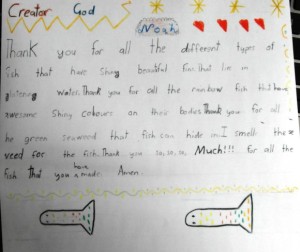 Creator God
Noah
Thank you for all the different types of
fish that have shiny beautiful fins that live in
glistening water. Thank you for all the rainbow fish that have
awesome shiny colours on their bodies. Thank you for all
he green seaweed that fish can hide in. I smell the
weed for the fish. Thank you so, so, so, Much!!! for all the
fish that you have made. Amen.